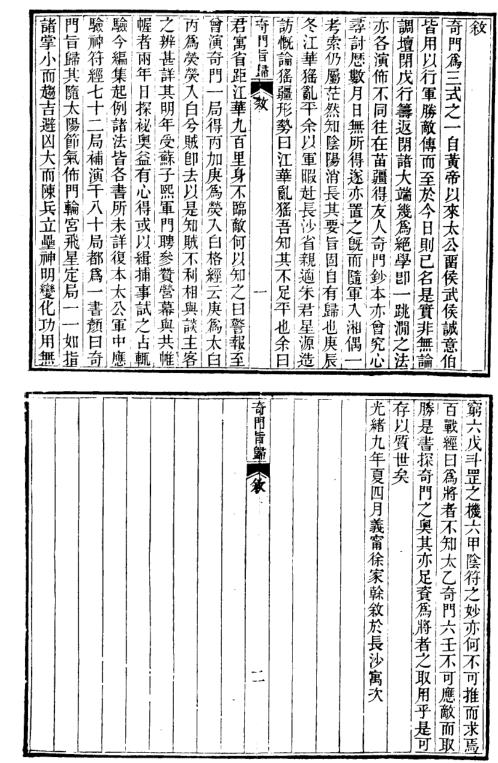 敘
奇門為三式之一自黃帝以來太公畱侯武侯誠意伯
皆用以行軍勝敵傳而至於今日則已名是實非無論
調壇閉戊行籌返閉諸大端幾為絕學即一跳澗之法
亦各演佈不同往在苗疆得友人奇門鈔本亦曾究心
尋討歷數月日無所得遂亦置之旣而隨軍入湘偶一
考索仍屬茫然知陰陽消長其要旨固自有歸也庚辰
冬江華猺亂平余以軍暇赴長沙省親適朱君星源造
訪慨論猺疆形勢曰江華亂猺吾知其不足平也余曰
奇門旨歸
敘
一
君寓省距江華九百里身不臨敵何以知之曰警報至
曾演奇門一局得丙加庚為熒入白格經云庚為太白
丙為熒熒入白兮賊即去以是知賊不利相與談主客
之辨甚詳其明年受蘇子熙軍門聘參贊營幕與共帷
幄者兩年日探祕奧益有心得或以緝捕事試之占輒
驗今編集起例諸法皆各書所未詳復本太公軍中應
驗神符經七十二局補演千八十局都為一書顏曰奇
門旨歸其隨太陽節氣佈門輪宮飛星定局一一如指
諸掌小而趨吉避凶大而陳兵立壘神明變化功用無
窮六戊斗罡之機六甲陰符之妙亦何不可推而求焉
百戰經曰為將者不知太乙奇門六壬不可應敵而取
勝是書探奇門之奧其亦足資為將者之取用乎是可
存以質世矣
光緒九年夏四月義甯徐家榦敘於長沙寓次
奇門旨歸
敘
二